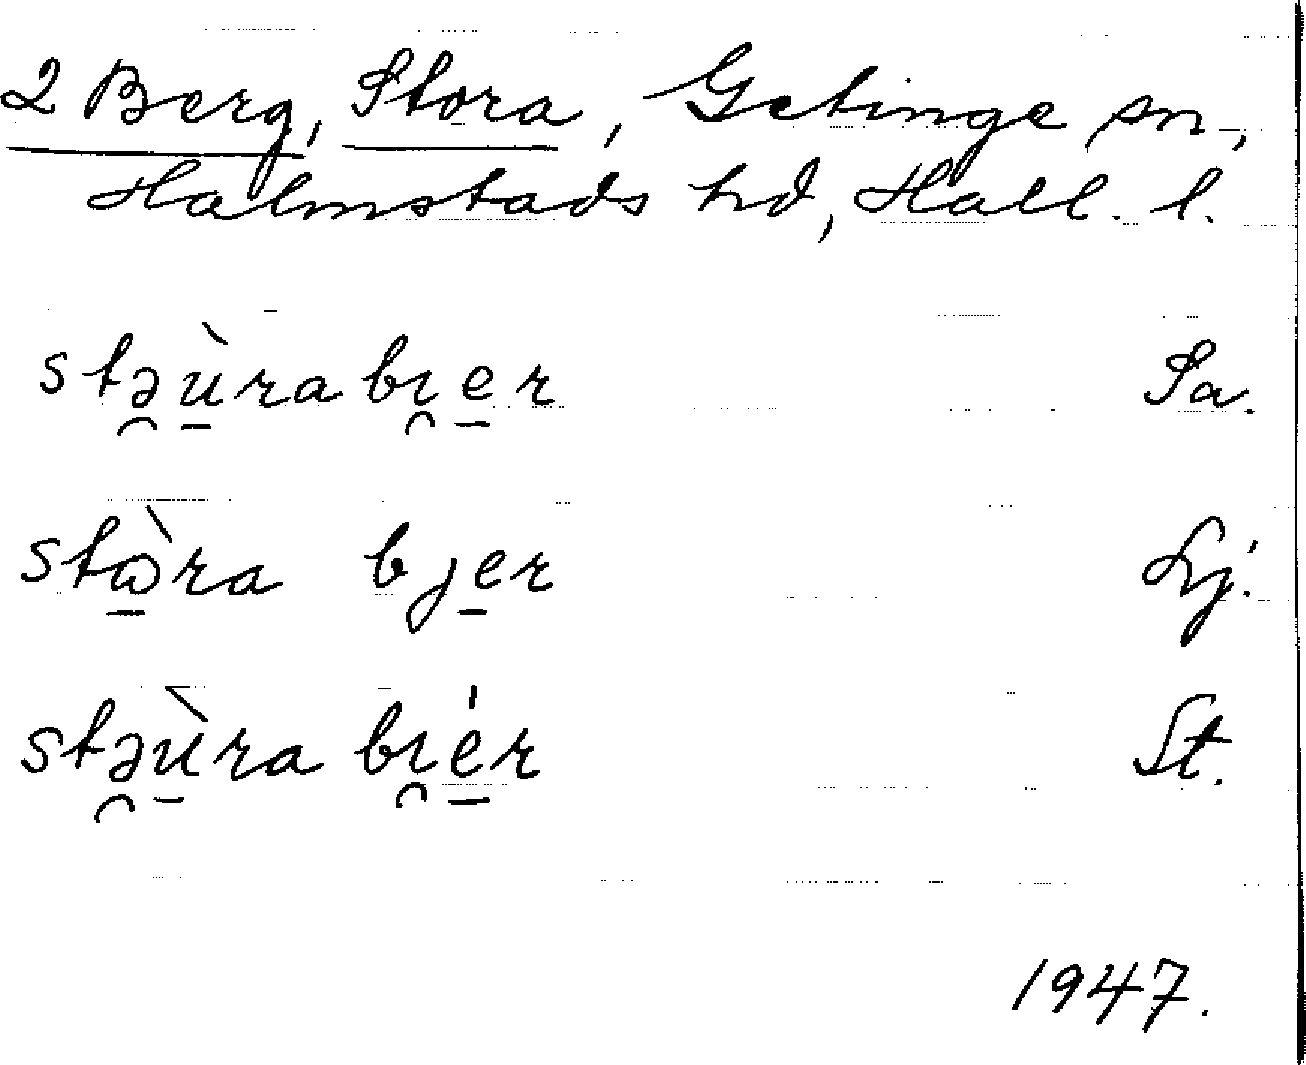 2 Berg, Stora, Getinge sn,
Halmstads hd, Hall. l.
stə̯ù̱ra bı̯e̱r Sa.
stὼ̱ra bȷe̱r Lj.
stə̯ù̱ra bı̯é̱r St.
1947.